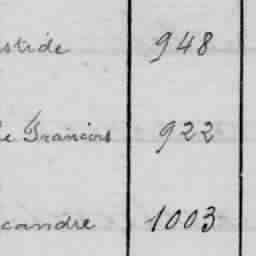 astide 948
ie Francois 922
candre 1003